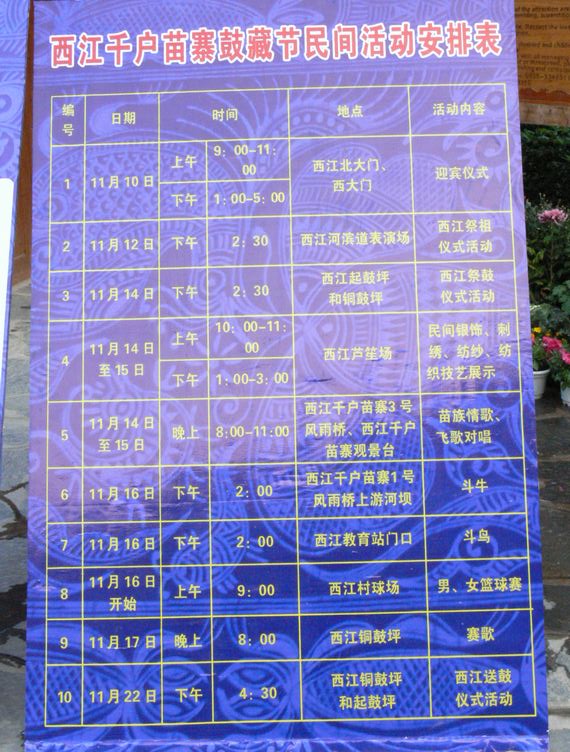 西江千户苗寨鼓藏节民间活动安排表
编号 日期 时间 地点 活动内容
1 11月10日 上午 9：00-11：00 西江北大门、西大门 迎宾仪式
下午 1：00-5：00
2 11月12日 下午 2：30 西江河滨道表演场 西江祭祖仪式活动
3 11月14日 下午 2：30 西江起鼓坪和铜鼓坪 西江祭鼓仪式活动
4 11月14日至15日 上午 10：00-11：00 西江芦笙场 民间银饰、刺绣、纺纱、纺织技艺展示
下午 1：00-3：00
5 11月14日至15日 晚上 8:00-11:00 西江千户苗寨3号风雨桥、西江千户苗寨观景台 苗族情歌、飞歌对唱
6 11月16日 下午 2：00 西江千户苗寨1号风雨桥上游河坝 斗牛
7 11月16日 下午 2：00 西江教育站门口 斗鸟
8 11月16日开始 上午 9：00 西江村球场 男、女篮球赛
9 11月17日 晚上 8：00 西江铜鼓坪 赛歌
10 11月22日 下午 4：30 西江铜鼓坪和起鼓坪 西江送鼓仪式活动